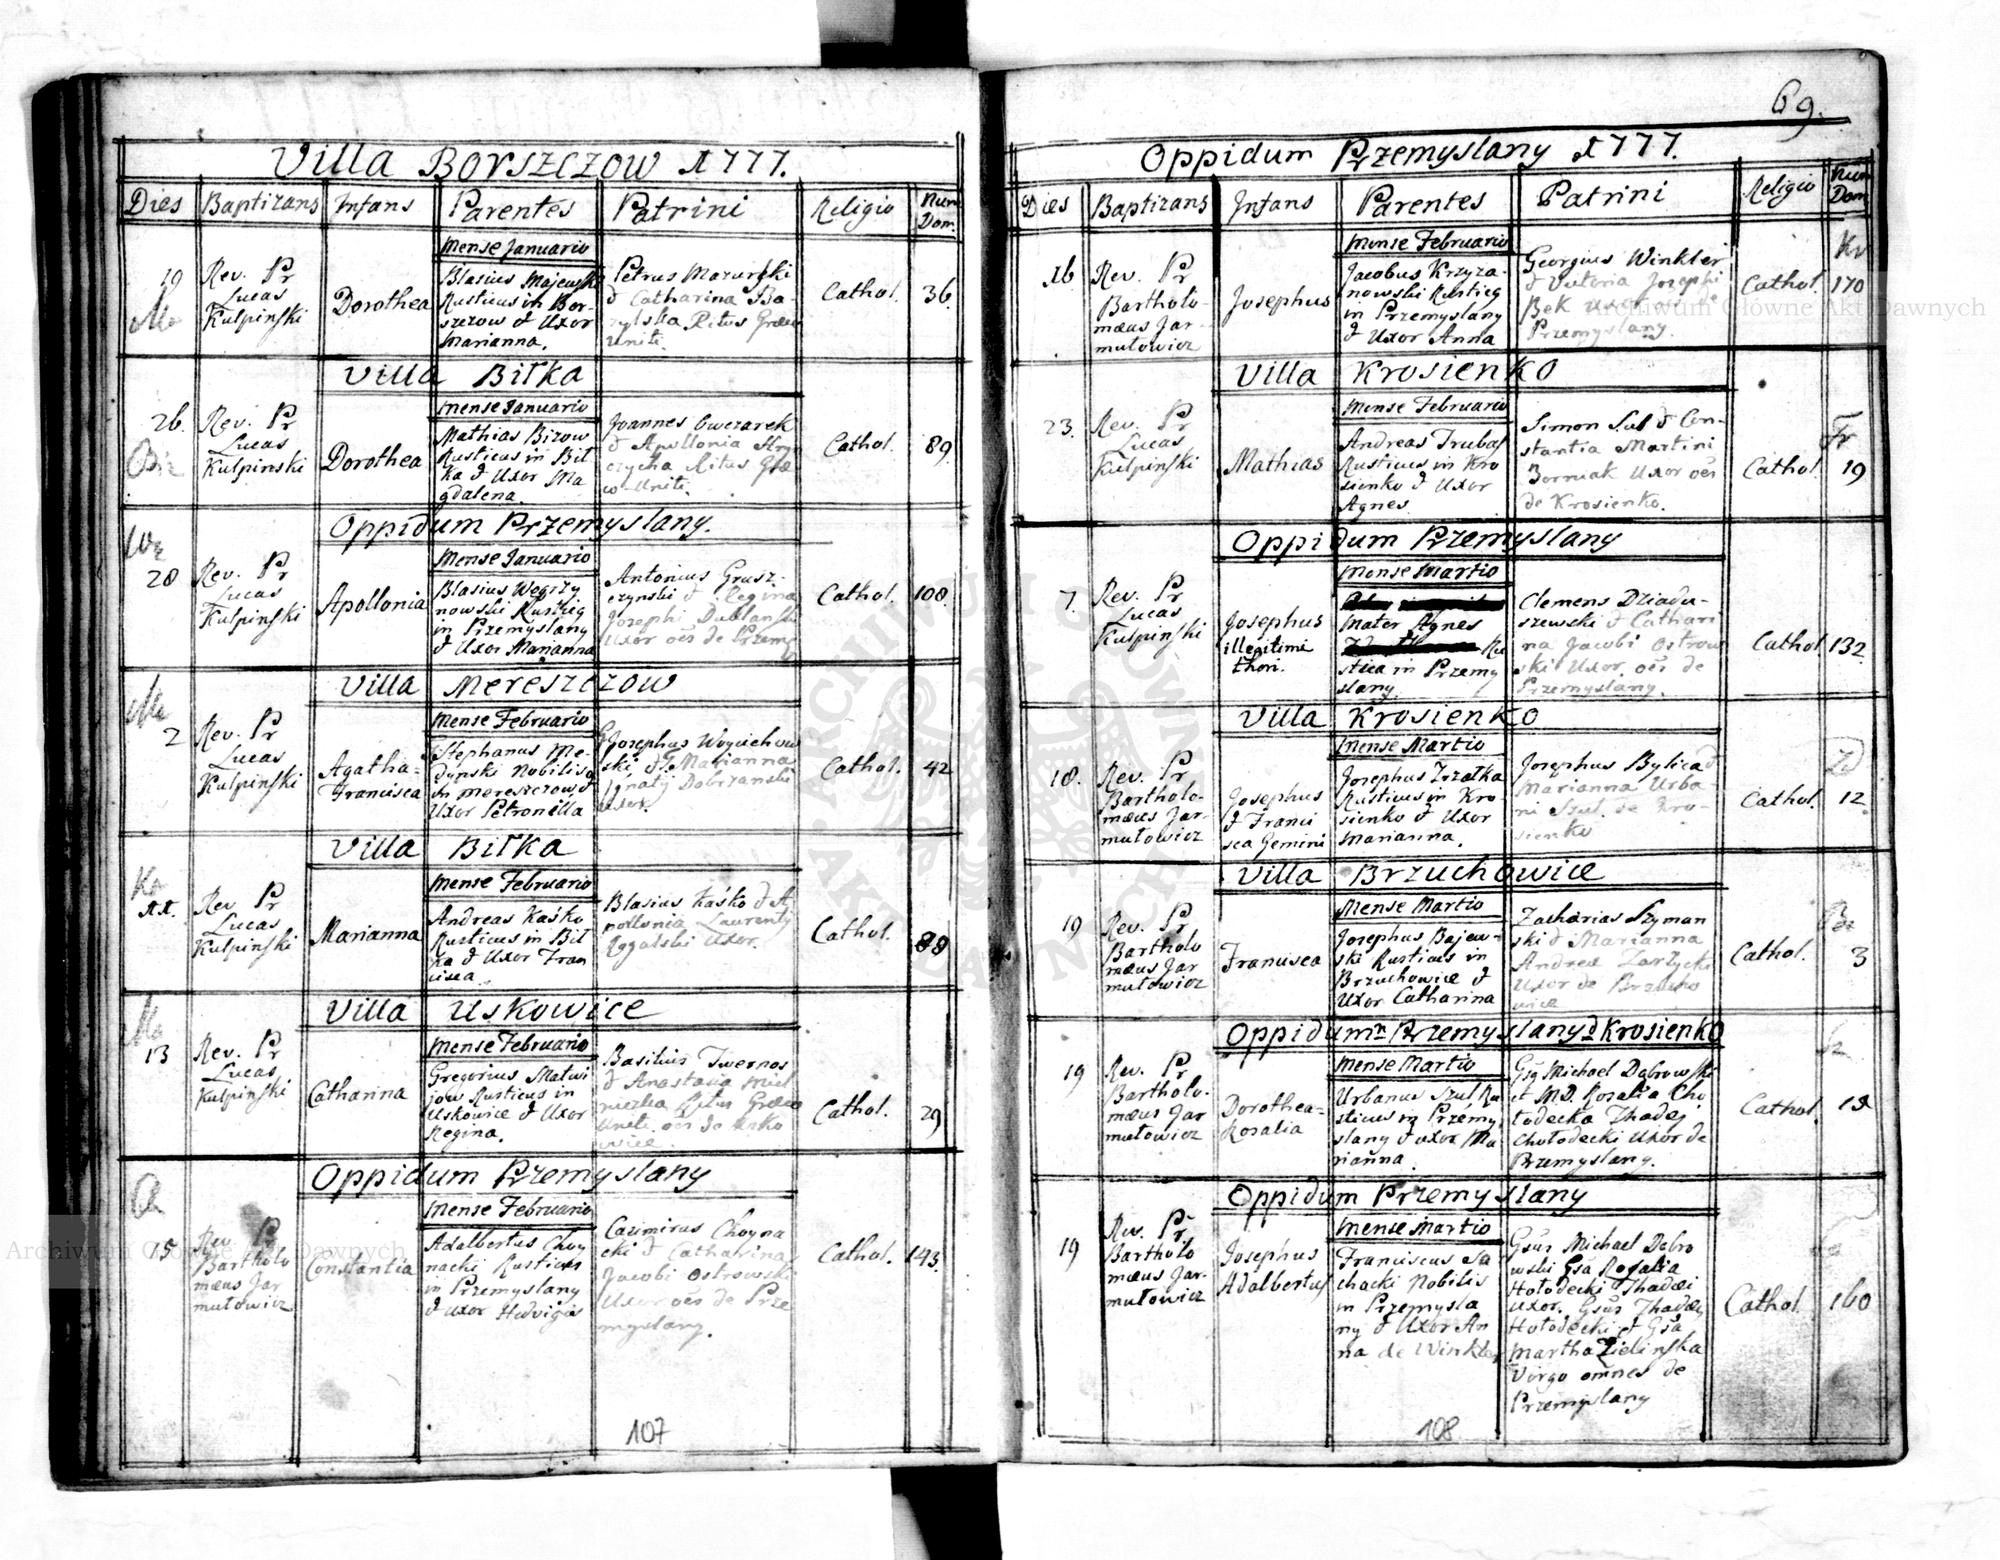 69.
Villa Borszczow 1777.
Dies Baptizans Infans Parentes Patrini Religio Num Dom.
Mense Januario
19
Rev. Pr
Lucas
Kulpinski
Dorothea
Blasius Majewski
Rusticus in Bor-
szczow & Uxor
Marianna.
Petrus Mazurski
& Catharina Ba-
Ritus Graeco
Uniti.
Cathol.
36.
Villa Biłka
Mense Januario
26.
Rev. Pr
Lucas
Kulpinski
Dorothea
Mathias Bizow
Rusticus in Bił
ka & Uxor Ma
gdalena.
Joannes Owczarek
& Apollonia
Ritus Græ
co-Uniti.
Cathol.
89.
Oppidum Przemyslany.
Mense Januario
28
Rev. Pr
Lucas
Kulpinski
Apollonia
Blasius Węgrzy
nowski Rusticg
in Przemyslany
& Uxor Marianna
Antonius Grusz-
czynski & Regina
Josephi Dublanski
Uxor oẽs de Przemy
Cathol.
108.
Villa Mereszczow
Mense Februario
2
Rev. Pr
Lucas
Kulpinski
Agatha-
Francisca
Stephanus Me-
dynski Nobilis
in Mereszczow &
Uxor Petronilla
Josephus Woyciehow
ski, & Marianna
Ignaty Dobrzanski
Uxor.
Cathol.
42
Villa Biłka
Mense Februario
11.
Rev. Pr
Lucas
Kulpinski
Marianna
Andreas Kaśko
Rusticus in Bił
ka & Uxor Fran
cisca.
Blasius Kaśko & A
pollonia Laurenty
Uxor.
Cathol.
88
Villa Uskowice
Mense Februario
13
Rev. Pr
Lucas
Kulpinski
Catharina
Gregorius Matwi
jow Rusticus in
Uskowice & Uxor
Regina.
Basilius Twernos
& Anastasia Miel
Ritus Graeco
Uniti. oẽs de Usko
wice.
Cathol.
29
Oppidum Przemyslany
Mense Februario
15
Rev. Pr
Bartholo
mæus Jar
mułowicz
Constantia
Adalbertus Choy
nacki Rusticus
in Przemyslany
& Uxor Hedvigis
Cazimirus Choyna
cki & Catharina
Jacobi Ostrowski
Uxor oẽs de Prze
myslany.
Cathol.
143.
107
Oppidum Przemyslany 1777.
Dies Baptizans Infans Parentes Patrini Religio Num Dom
Mense Februario
16
Rev. Pr
Bartholo-
mæus Jar-
mułowicz
Josephus
Jacobus Krzyza-
nowski Rusticg
in Przemyslany
& Uxor Anna
Georgius Winkler
& Victoria Josephi
Bek Uxor oẽs de
Przemyslany.
Cathol.
170
Villa Krosienko
Mense Februario
23.
Rev. Pr
Lucas
Kulpinski
Mathias
Andreas Trubas
Rusticus in Kro
sienko & Uxor
Agnes.
Simon Sul & Con-
stantia Martini
Borniak Uxor oẽs
de Krosienko.
Cathol.
19
Oppidum Przemyslany
Mense Martio
7.
Rev. Pr
Lucas
Kulpinski
Josephus
illegitimi
thori.
Mater Agnes
Ru
stica in Przemy
slany
Clemens Dziadu-
szewski & Cathari
na Jacobi Ostrow
ski Uxor, oẽs de
Przemyslany.
Cathol.
132
Villa Krosienko
Mense Martio
18.
Rev. Pr
Bartholo-
mæus Jar-
mułowicz
Josephus
& Franci
sca Gemini
Josephus Trzatka
Rusticus in Kro-
sienko & Uxor
Marianna.
Josephus Bylica &
Marianna Urba-
ni Szul. de Kro-
sienko
Cathol.
12
Villa Brzuchowice
Mense Martio
19
Rev. Pr
Bartholo
mæus Jar
mułowicz
Francisca
Josephus Bajew-
ski Rusticus in
Brzuchowice &
Uxor Catharina
Zacharias Szyman
ski & Marianna
Andreæ Zarzycki
Uxor de Brzucho
wice
Cathol.
3
Oppidum Przemyslany & Krosienko
Mense Martio
19
Rev. Pr
Bartholo-
mæus Jar
mułowicz
Dorothea-
Rosalia
Urbanus Szul Ru
sticus in Przemy
slany & Uxor Ma
rianna.
Gsg Michael Dąbrowski
et MD. Rosalia Cho
łodecka Thadej
Chołodecki Uxor de
Przemyslany.
Cathol.
Oppidum Przemyslany
Mense Martio
19
Rev. Pr
Bartholo
mæus Jar-
mułowicz
Josephus
Adalbertus
Franciscus Sa
chacki Nobilis
in Przemysla
ny & Uxor An
na de Winkler
Gsus Michael Dabro
wski Gsa Rosalia
Hołodecki Thadæi
Uxor. Gsus Thadæi
Hołodecki & Gsa
Martha Zielinska
Virgo omnes de
Przemyslany
Cathol.
160
108
Archiwum Główne Akt Dawnych